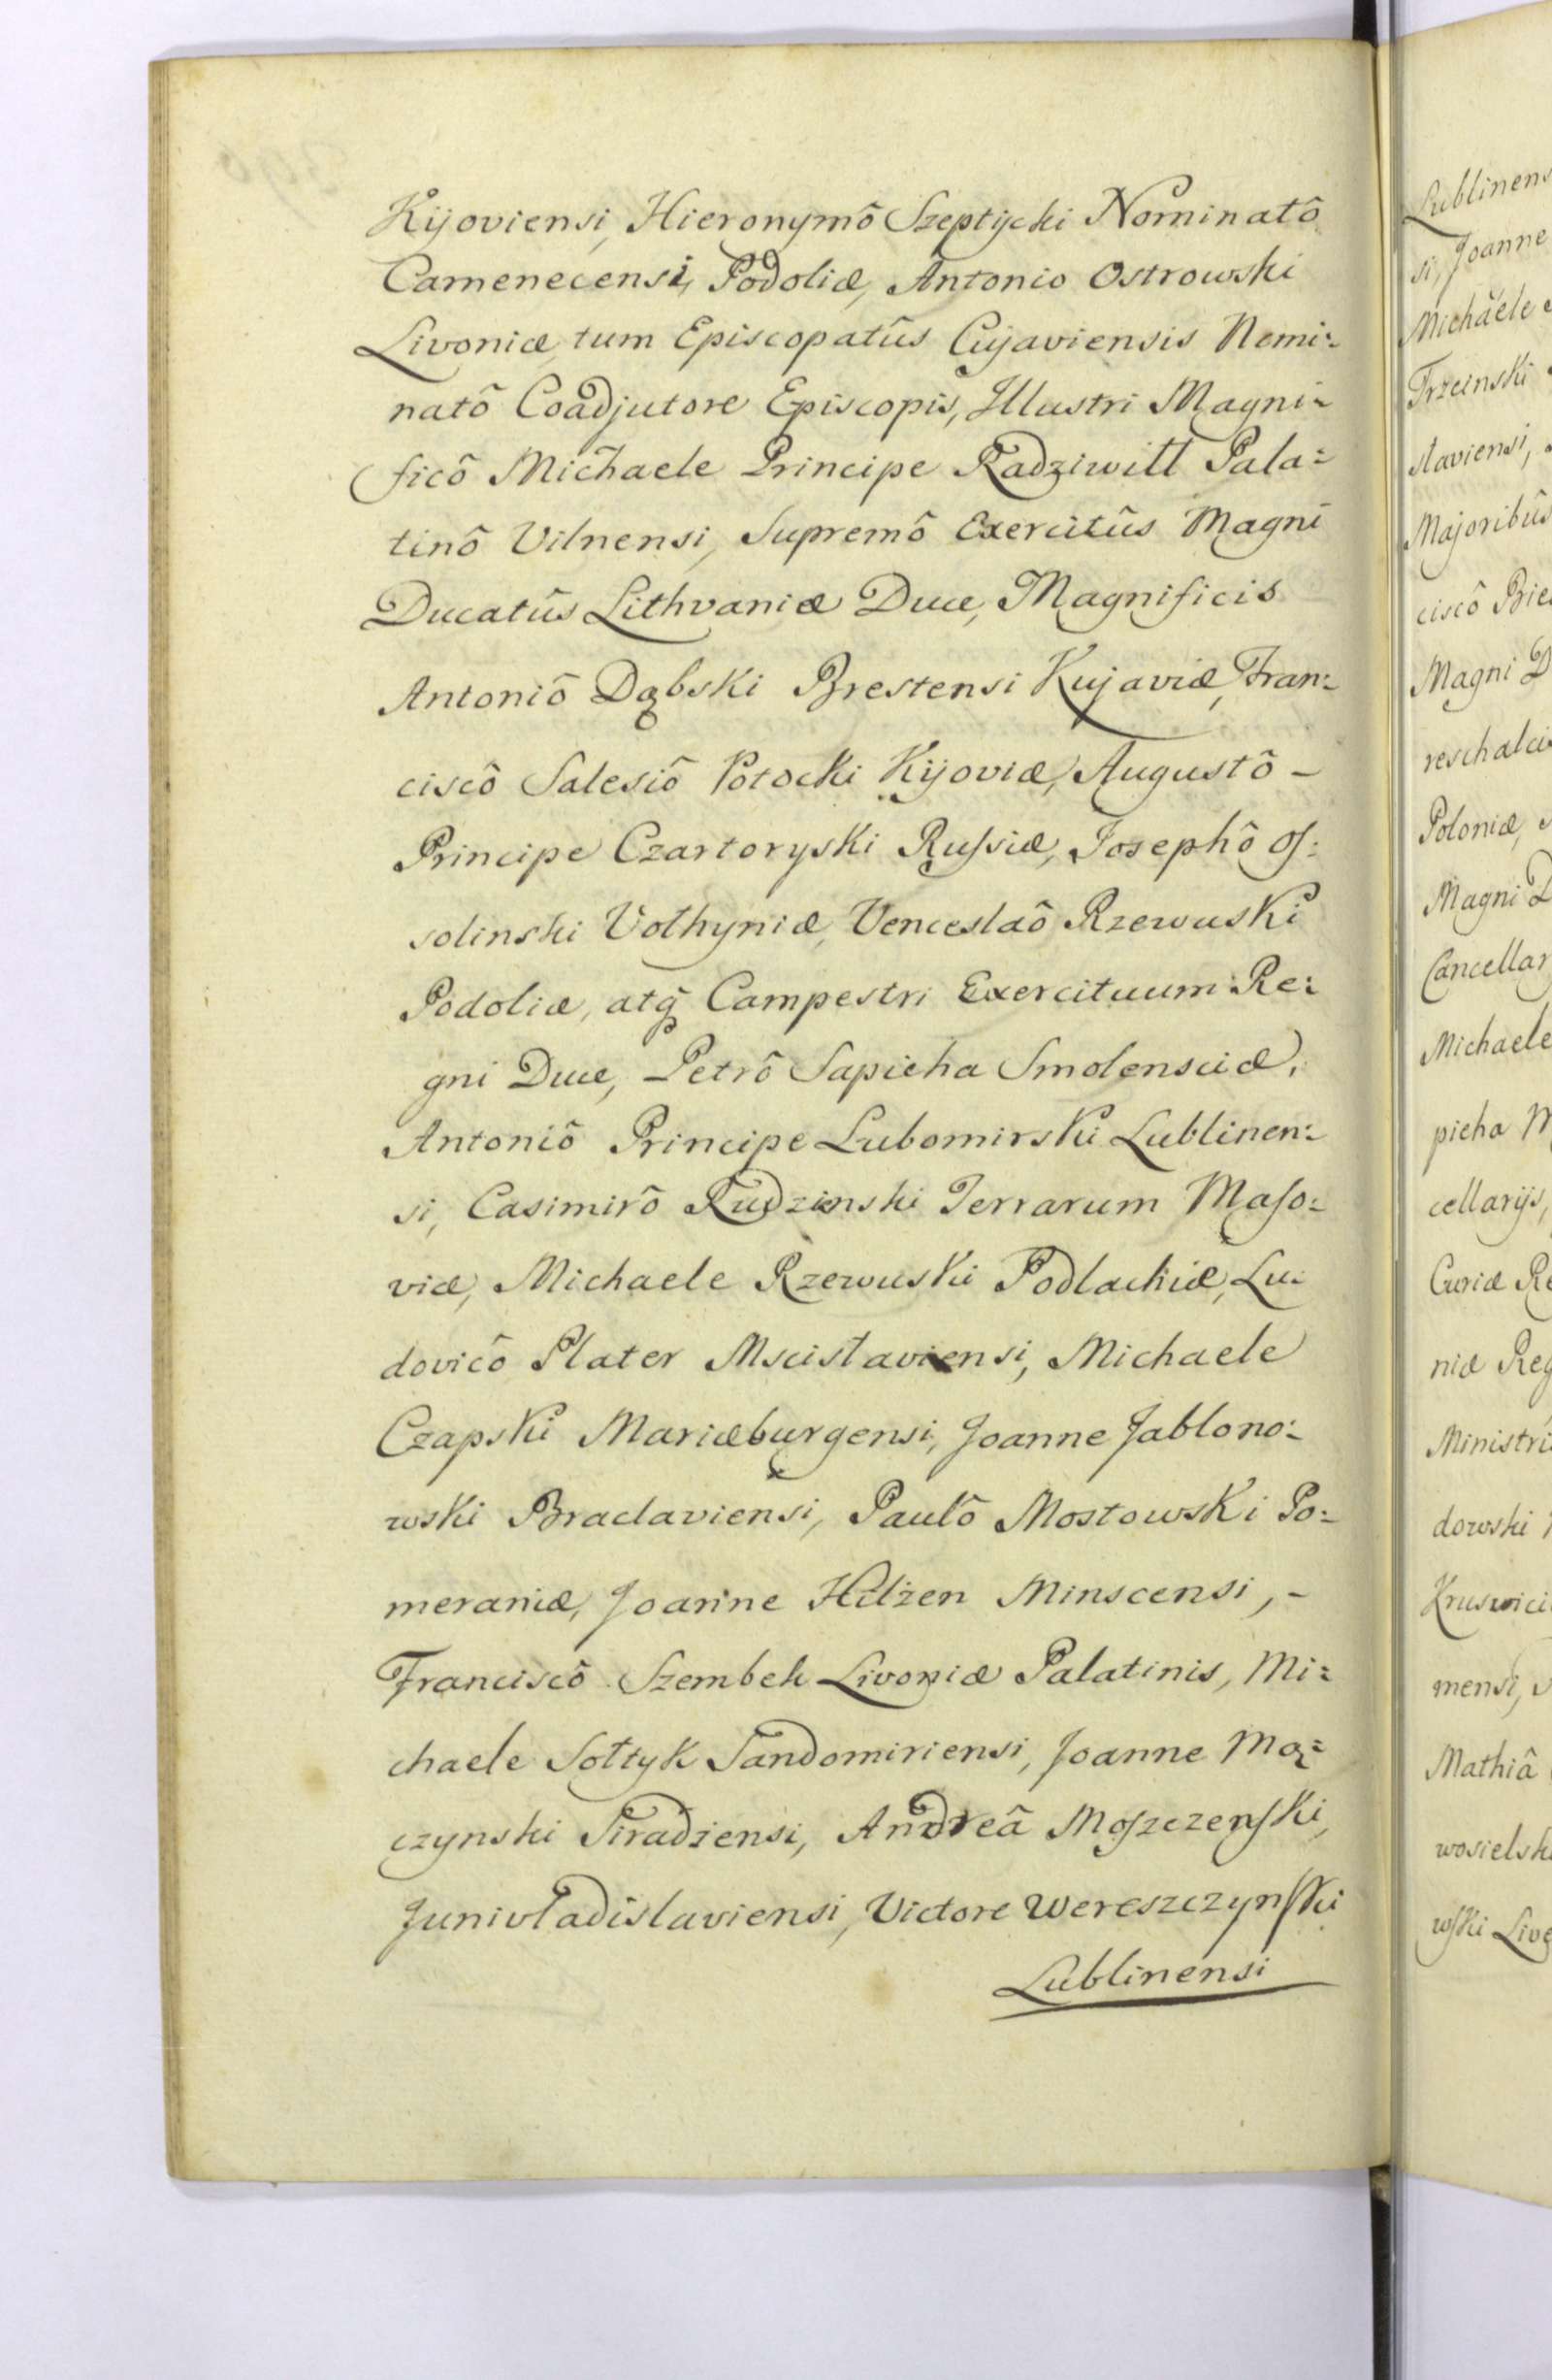 Kijoviensi, Hieronymô Szeptycki Nominatô
Camenecensi, Podoliæ, Antonio Ostrowski
Livoniæ tum Episcopatûs Cujaviensis Nomi:
natô Coadjutore Episcopis, Illustri Magni:
ficô Michaele Principe Radziwiłł Pala:
tinô Vilnensi, Supremô Exercitûs Magni
Ducatûs Lithvaniæ Duce, Magnificis
Antoniô Dąbski Brestensi Kujaviæ, Fran:
ciscô Salesiô Potocki Kijoviæ, Augustô -
Principe Czartoryski Rußiæ, Josephô Oſ:
solinski Volhyniæ, Venceslaô Rzewuski
Podoliæ, atq̃ Campestri Exercituum Re:
gni Duce, Petrô Sapieha Smolensciæ,
Antoniô Principe Lubomirski Lublinen:
si, Casimirô Rudzinski Terrarum Maſo:
viæ, Michaele Rzewuski Podlachiæ, Lu:
dovicô Plater Mscislaviensi, Michaele
Czapski Mariæburgensi, Joanne Jablono:
wski Braclaviensi, Paulô Mostowski Po:
meraniæ, Joanne Hilżen Minscensi, -
Franciscô Szembek Livoniæ Palatinis, Mi:
chaele Sołtyk Sandomiriensi, Joanne Mą:
czynski Siradiensi, Andreâ Moſzczenſki,
Junivladislaviensi, Victore Wereszczynſki
Lublinensi
Lublinens
si, Joanne
Michaele
Trzcinski
slaviensi,
Majoribûs
ciscô Bie
Magni D
reschalci
Poloniæ,
Magni D
Cancellar
Michaele
pieha M
cellarijs,
Curiæ Re
niæ Reg
Ministri
dowski
Kruswici
mensi,
Mathiâ
wosielsk
wſki Liv